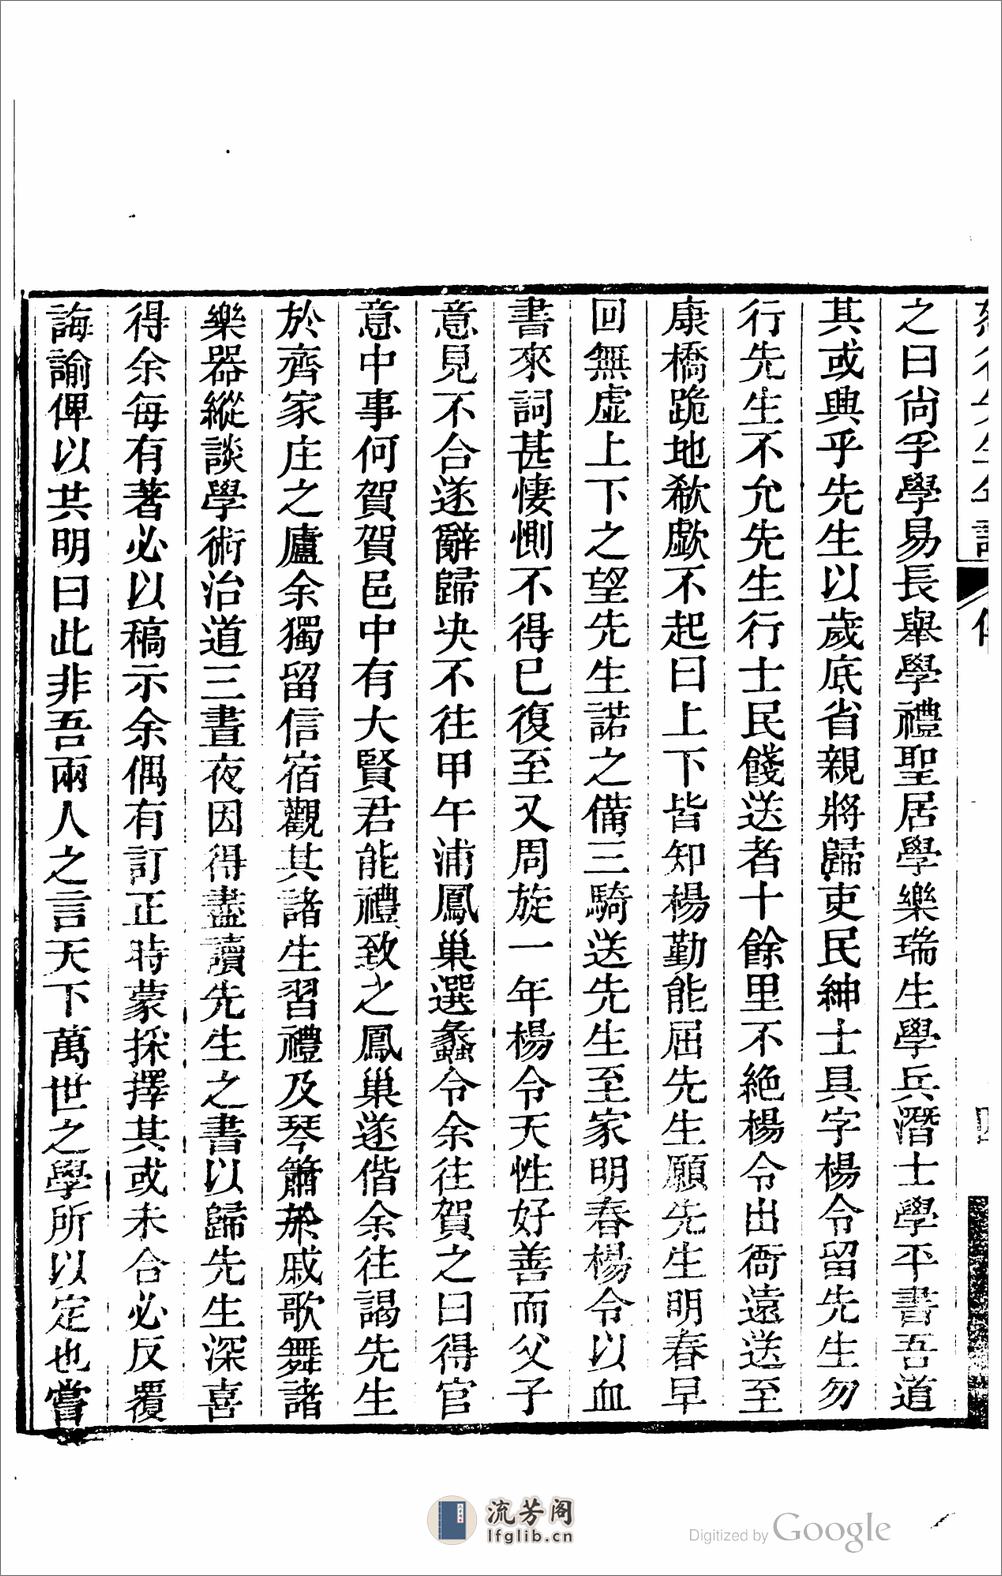 之曰尚孚學易長舉學禮聖居學樂瑞生學兵潛士學平書吾道
其或興乎先生以歲底省親將歸吏民紳士具字楊令留先生勿
行先生不允先生行士民餞送者十餘里不絶楊令出衙遠送至
康橋跪地欷歔不起曰上下皆知楊勤能屈先生願先生明春早
回無虛上下之望先生諾之備三騎送先生至家明春楊令以血
書來詞甚悽惻不得已復至又周旋一年楊令天性好善而父子
意見不合遂辭歸决不往甲午浦鳳巢選蠡令余往賀之曰得官
意中事何賀賀邑中有大賢君能禮致之鳳巢遂偕余往謁先生
於齊家庄之廬余獨留信宿觀其諸生習禮及琴簫於戚歌舞諸
樂器縱談學術治道三晝夜因得盡讀先生之書以歸先生深喜
得余每有著必以稿示余偶有訂正時蒙採擇其或未合必反覆
誨諭俾以共明曰此非吾兩人之言天下萬世之學所以定也嘗
流芳阁
lfglib.cn
Digitized by Google